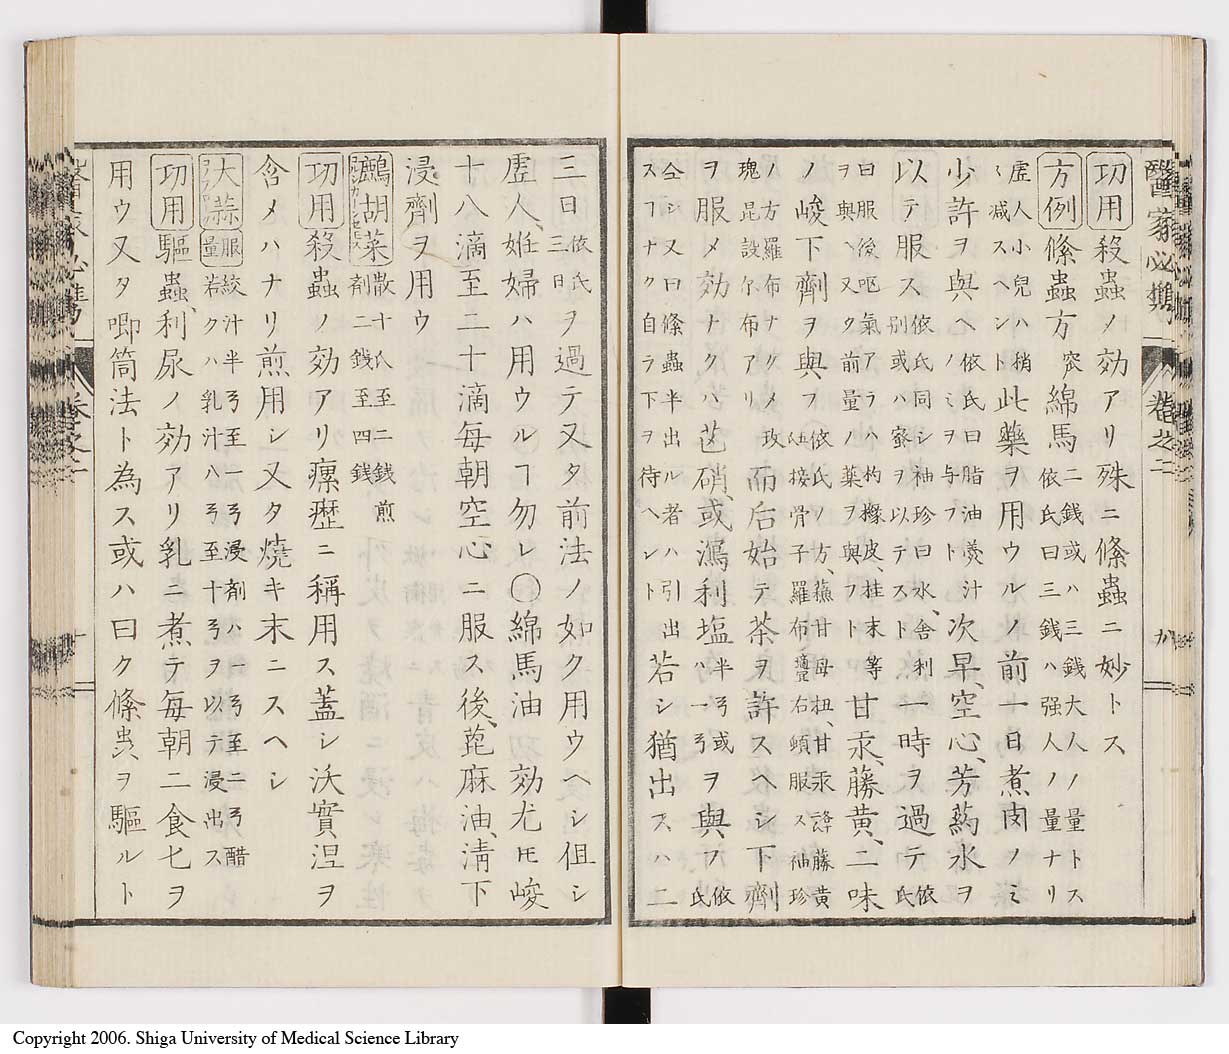 醫家必攜 卷之二 九
功用 殺蟲ノ効アリ殊ニ條蟲ニ妙トス
方例 條蟲方 窊綿馬 二銭或ハ三銭大人ノ量トス
依氏曰三銭ハ强人ノ量ナリ
虛人小兒ハ稍
〻減スヘント 此藥ヲ用ウルノ前一日煮肉ノミ
少許ヲ與ヘ 依氏曰脂油羮汁
ノミヲ与フト 次早空心、芳葯水ヲ
以テ服ス 依氏同シ袖珍曰水、舎利
別或ハ蜜ヲ以テスト 一時ヲ過テ 依
氏
曰服後呕氣アラハ枸櫞皮、桂末等
ヲ與ヘ又タ前量ノ藥ヲ與フト 甘汞、藤黄、二味
ノ峻下劑ヲ與フ 依氏ノ方、蕪甘母扭、甘汞藤黄
接骨子羅布、右頓服ス袖珍
ノ方羅布ナクメ玫
瑰昆設尔布アリ 而后始テ茶ヲ許スヘシ下劑
ヲ服メ効ナクハ芒硝、或瀉利塩 半弓或
ハ一弓 ヲ與フ 依
氏
仝シ又曰條蟲半出ル者ハ引出
スフナク自ラ下ヲ待ヘント 若シ猶出スハ二
三日 依氏
三日 ヲ過テ又タ前法ノ如ク用ウヘシ但シ
虛人、妊婦ハ用ウルヿ勿レ〇綿馬油効尤モ峻
十八滴至二十滴每朝空心ニ服ス後、蓖麻油、淸下
浸劑ヲ用ウ
鷓胡菜 散十瓜至二銭煎
剤二銭至四銭
功用 殺蟲ノ効アリ瘰癧ニ稱用ス蓋シ沃實涅ヲ
含メハナリ煎用シ又タ燒キ末ニスヘシ
大蒜 服量 絞汁半弓至一弓浸剤ハ一弓至二弓醋
若クハ乳汁八弓至十弓ヲ以テ浸出ス
功用 驅蟲、利尿ノ効アリ乳ニ煮テ每朝二食匕ヲ
用ウ又タ喞筒法ト為ス或ハ曰ク條虫ヲ驅ルト
醫家必攜 卷之二 十
Copyright 2006. Shiga University of Medical Science Library